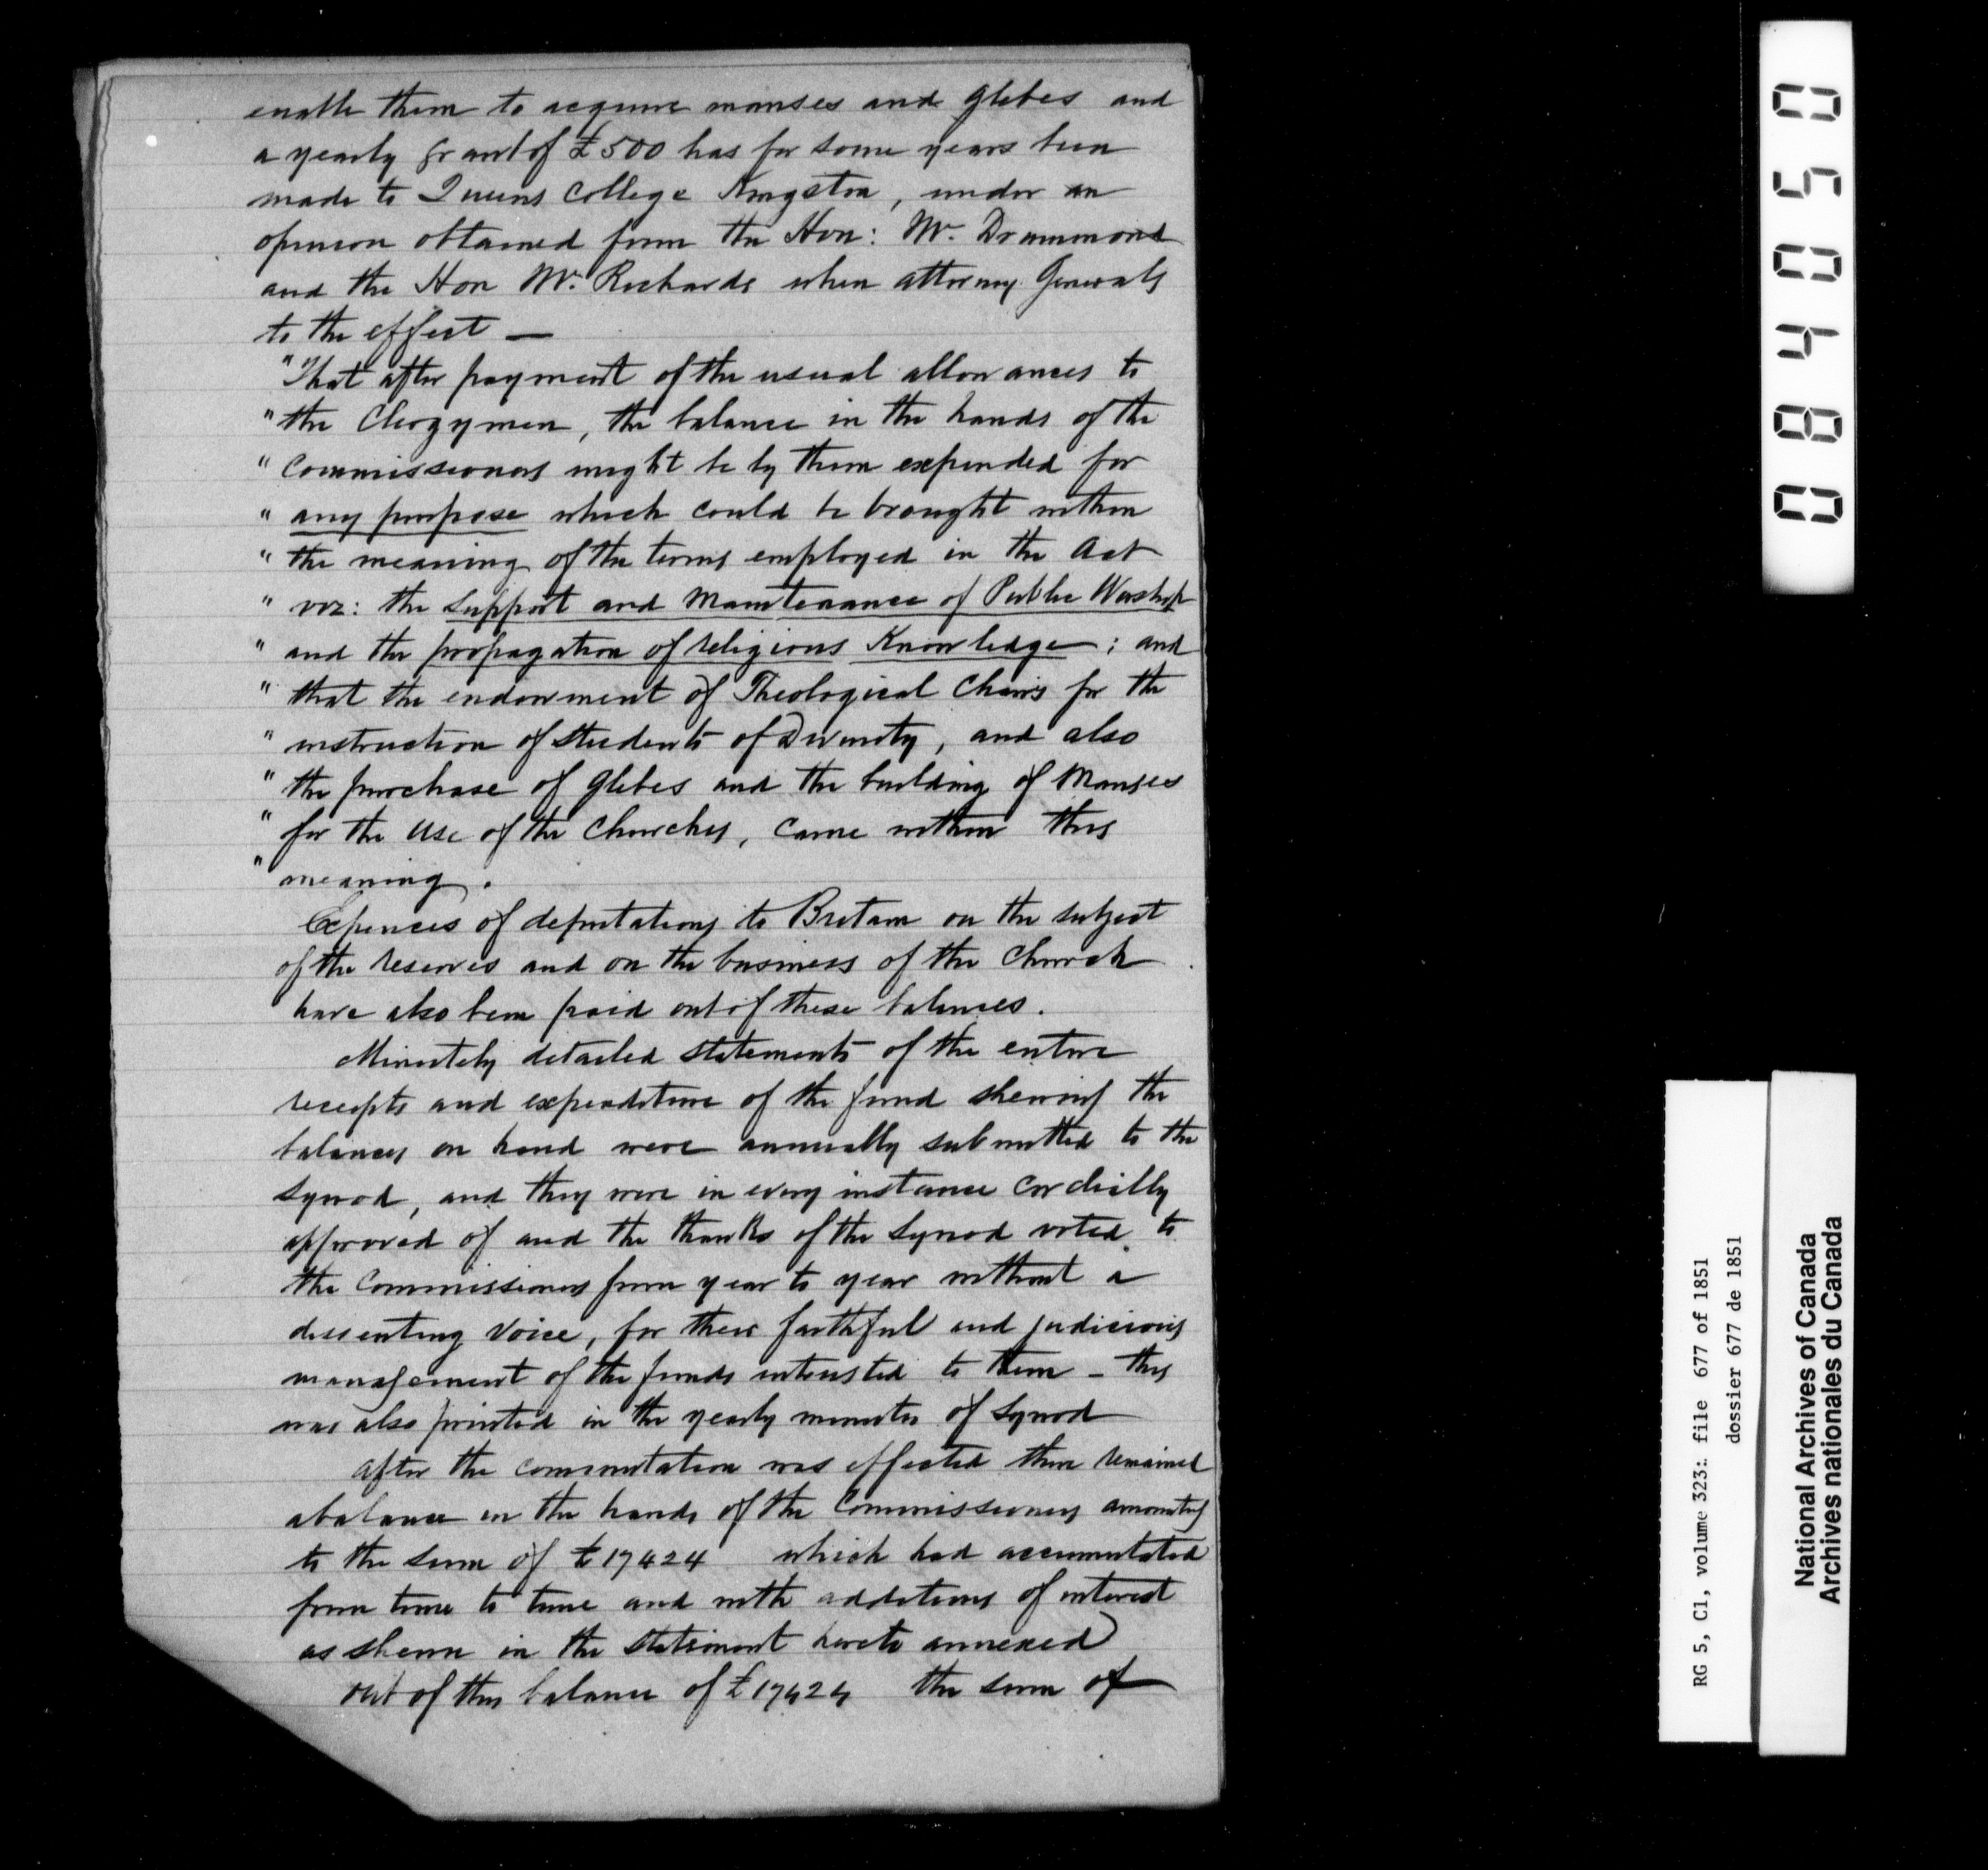 enable them to acquire manses and glebes and
a yearly grant of £500 has for some years been
made to Queens College Kingston, under an
opinion obtained from the Hon: Mr. Drummond
and the Hon Mr. Richards when attorney Generals
to the effect —
"That after payment of the usual allowances to
" the Clergymen, the balance in the hands of the
" Commissioners might be by them expended for
" any purpose which could be brought within
" the meaning of the terms employed in the Act
" viz: the support and Maintenance of Public Worship
" and the propagation of religious Knowledge; and
" that the endowment of Theological Chairs for the
" instruction of students of Divinity, and also
" the purchase of glebes and the building of Manses
" for the use of the Churches, came within this
" meaning.
Expences of deputations to Britain on the subject
of the reserves and on the business of the Church
have also been paid out of these balances.
Minutely detailed statements of the entire
receipts and expenditure of the fund shewing the
balances on hand were annually submitted to the
Synod, and they were in every instance cordially
approved of and the thanks of the Synod voted to
the Commissioners from year to year without a
dissenting voice, for their faithful and judicious
management of the funds intrusted to them – this
was also printed in the yearly minutes of Synod
After the commutation was effected there remained
a balance in the hands of the Commissioners amounting
to the sum of £17424 which had accumulated
from time to time and with additions of interest
as shewn in the statement hereto annexed
Out of this balance of £17424 the sum of
084050
RG 5, C1, volume 323: file 677 of 1851
dossier 677 de 1851
National Archives of Canada
Archives nationales du Canada